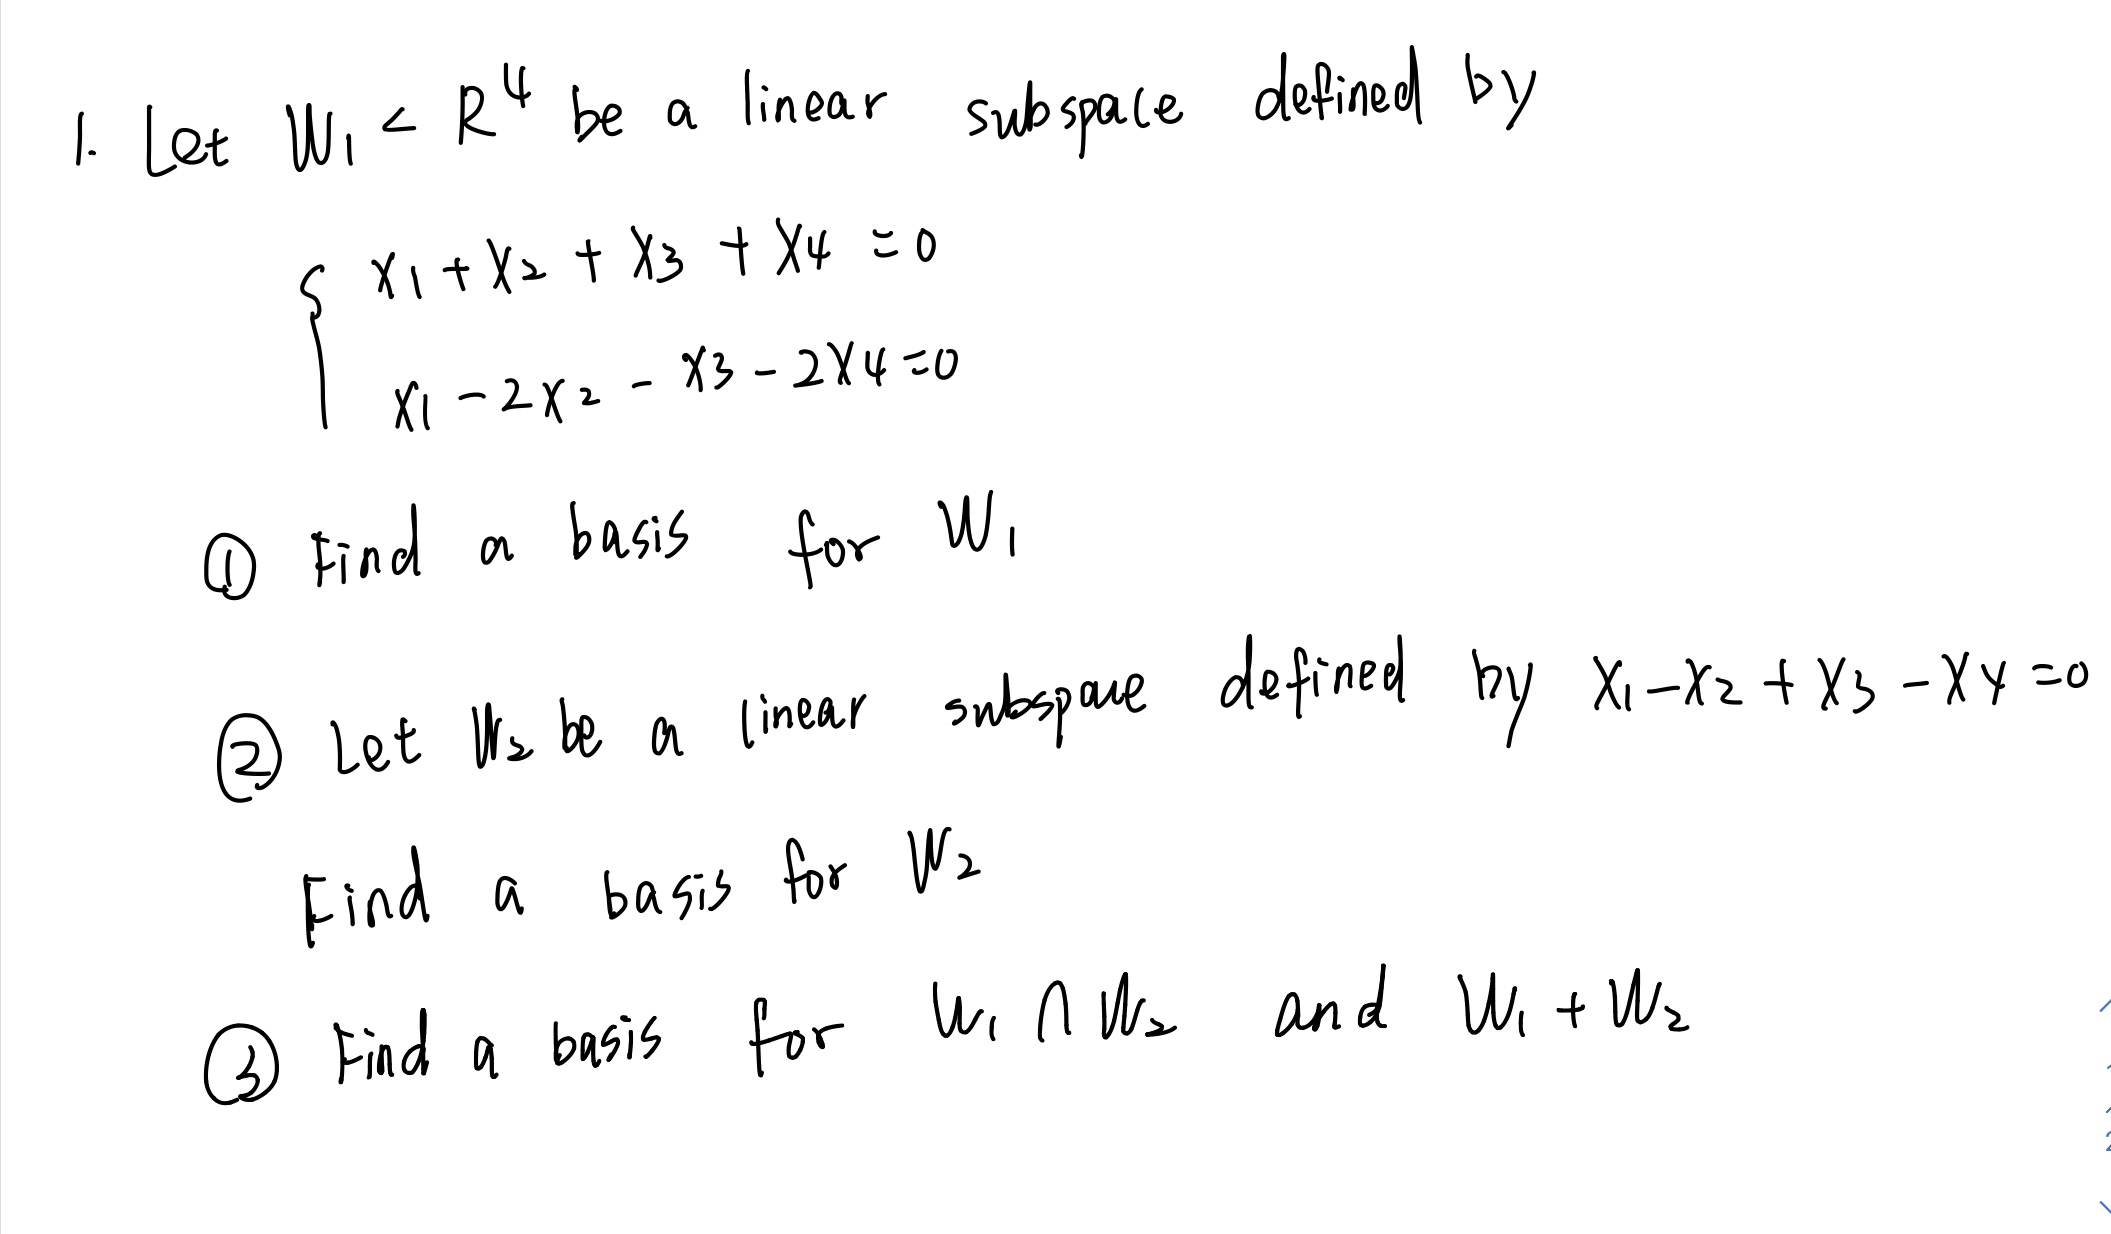 1. Let W₁ < R⁴ be a linear subspace defined by
{ x₁ + x₂ + x₃ + x₄ = 0
x₁ - 2x₂ - x₃ - 2x₄ = 0
① Find a basis for W₁
② Let W₂ be a linear subspace defined by x₁ - x₂ + x₃ - x₄ = 0
Find a basis for W₂
③ Find a basis for W₁ ∩ W₂ and W₁ + W₂